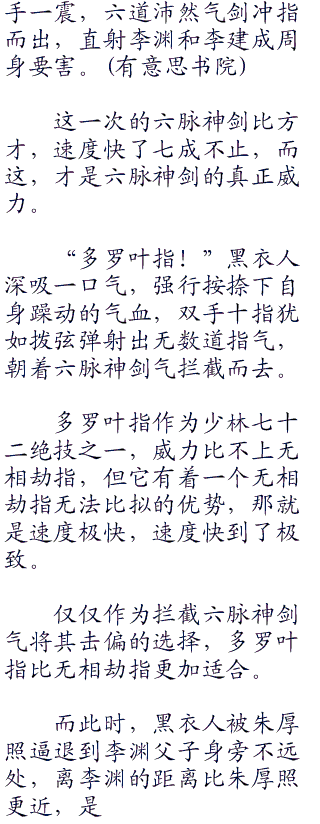 手一震，六道沛然气剑冲指
而出，直射李渊和李建成周
身要害。（有意思书院）
这一次的六脉神剑比方
才，速度快了七成不止，而
这，才是六脉神剑的真正威
力。
“多罗叶指！”黑衣人
深吸一口气，强行按捺下自
身躁动的气血，双手十指犹
如拨弦弹射出无数道指气，
朝着六脉神剑气拦截而去。
多罗叶指作为少林七十
二绝技之一，威力比不上无
相劫指，但它有着一个无相
劫指无法比拟的优势，那就
是速度极快，速度快到了极
致。
仅仅作为拦截六脉神剑
气将其击偏的选择，多罗叶
指比无相劫指更加适合。
而此时，黑衣人被朱厚
照逼退到李渊父子身旁不远
处，离李渊的距离比朱厚照
更近，是